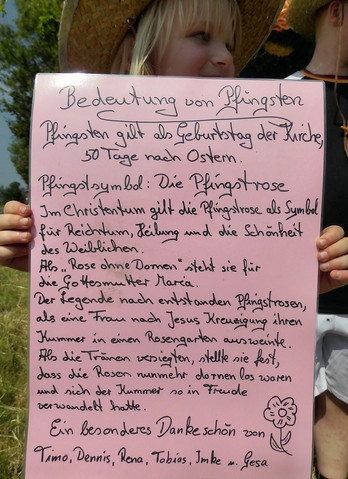 Bedeutung von Pfingsten
Pfingsten gilt als Geburtstag der Kirche,
50 Tage nach Ostern.
Pfingstsymbol: Die Pfingstrose
Im Christentum gilt die Pfingstrose als Symbol
für Reichtum, Heilung und die Schönheit
des Weiblichen.
Als „Rose ohne Dornen" steht sie für
die Gottesmutter Maria.
Der Legende nach entstanden Pfingstrosen,
als eine Frau nach Jesus Kreuzigung ihren
Kummer in einen Rosengarten ausweinte.
Als die Tränen versiegten, stellte sie fest,
dass die Rosen nunmehr dornen los waren
und sich der Kummer so in Freude
verwandelt hatte.
Ein besonderes Dankeschön von
Timo, Dennis, Rena, Tobias, Imke u. Gesa